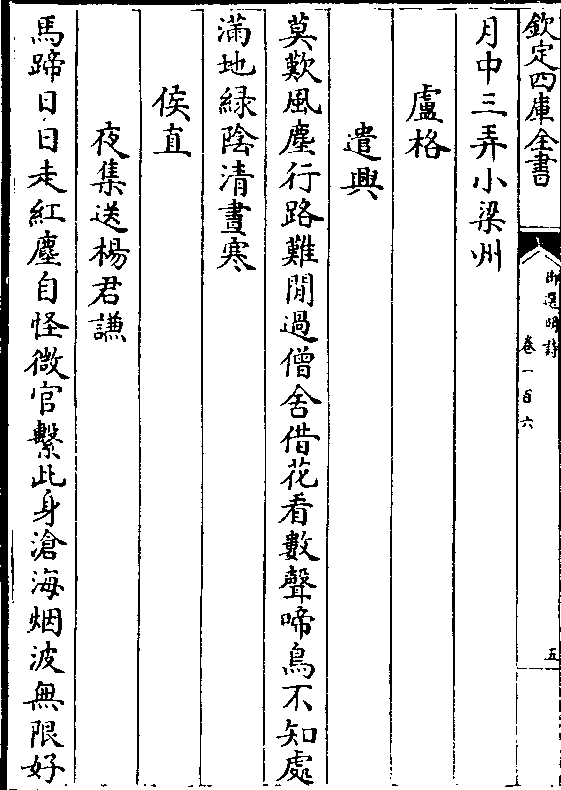 欽定四庫全書
御選明詩
卷一百六
五
月中三弄小梁州
盧格
遣興
莫歎風塵行路難閒過僧舍借花看數聲啼鳥不知處
滿地綠陰清晝寒
侯直
夜集送楊君謙
馬蹄日日走紅塵自怪微官繫此身滄海烟波無限好